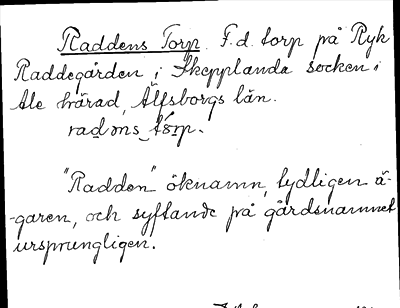 Raddens Torp. F.d. torp på Ryk
Raddegården i Skepplanda socken i
Ale härad, Älfsborgs län.
radəns torp.
"Radden" öknamn, tydligen ä-
-garen, och syftande på gårdsnamnet
ursprungligen.